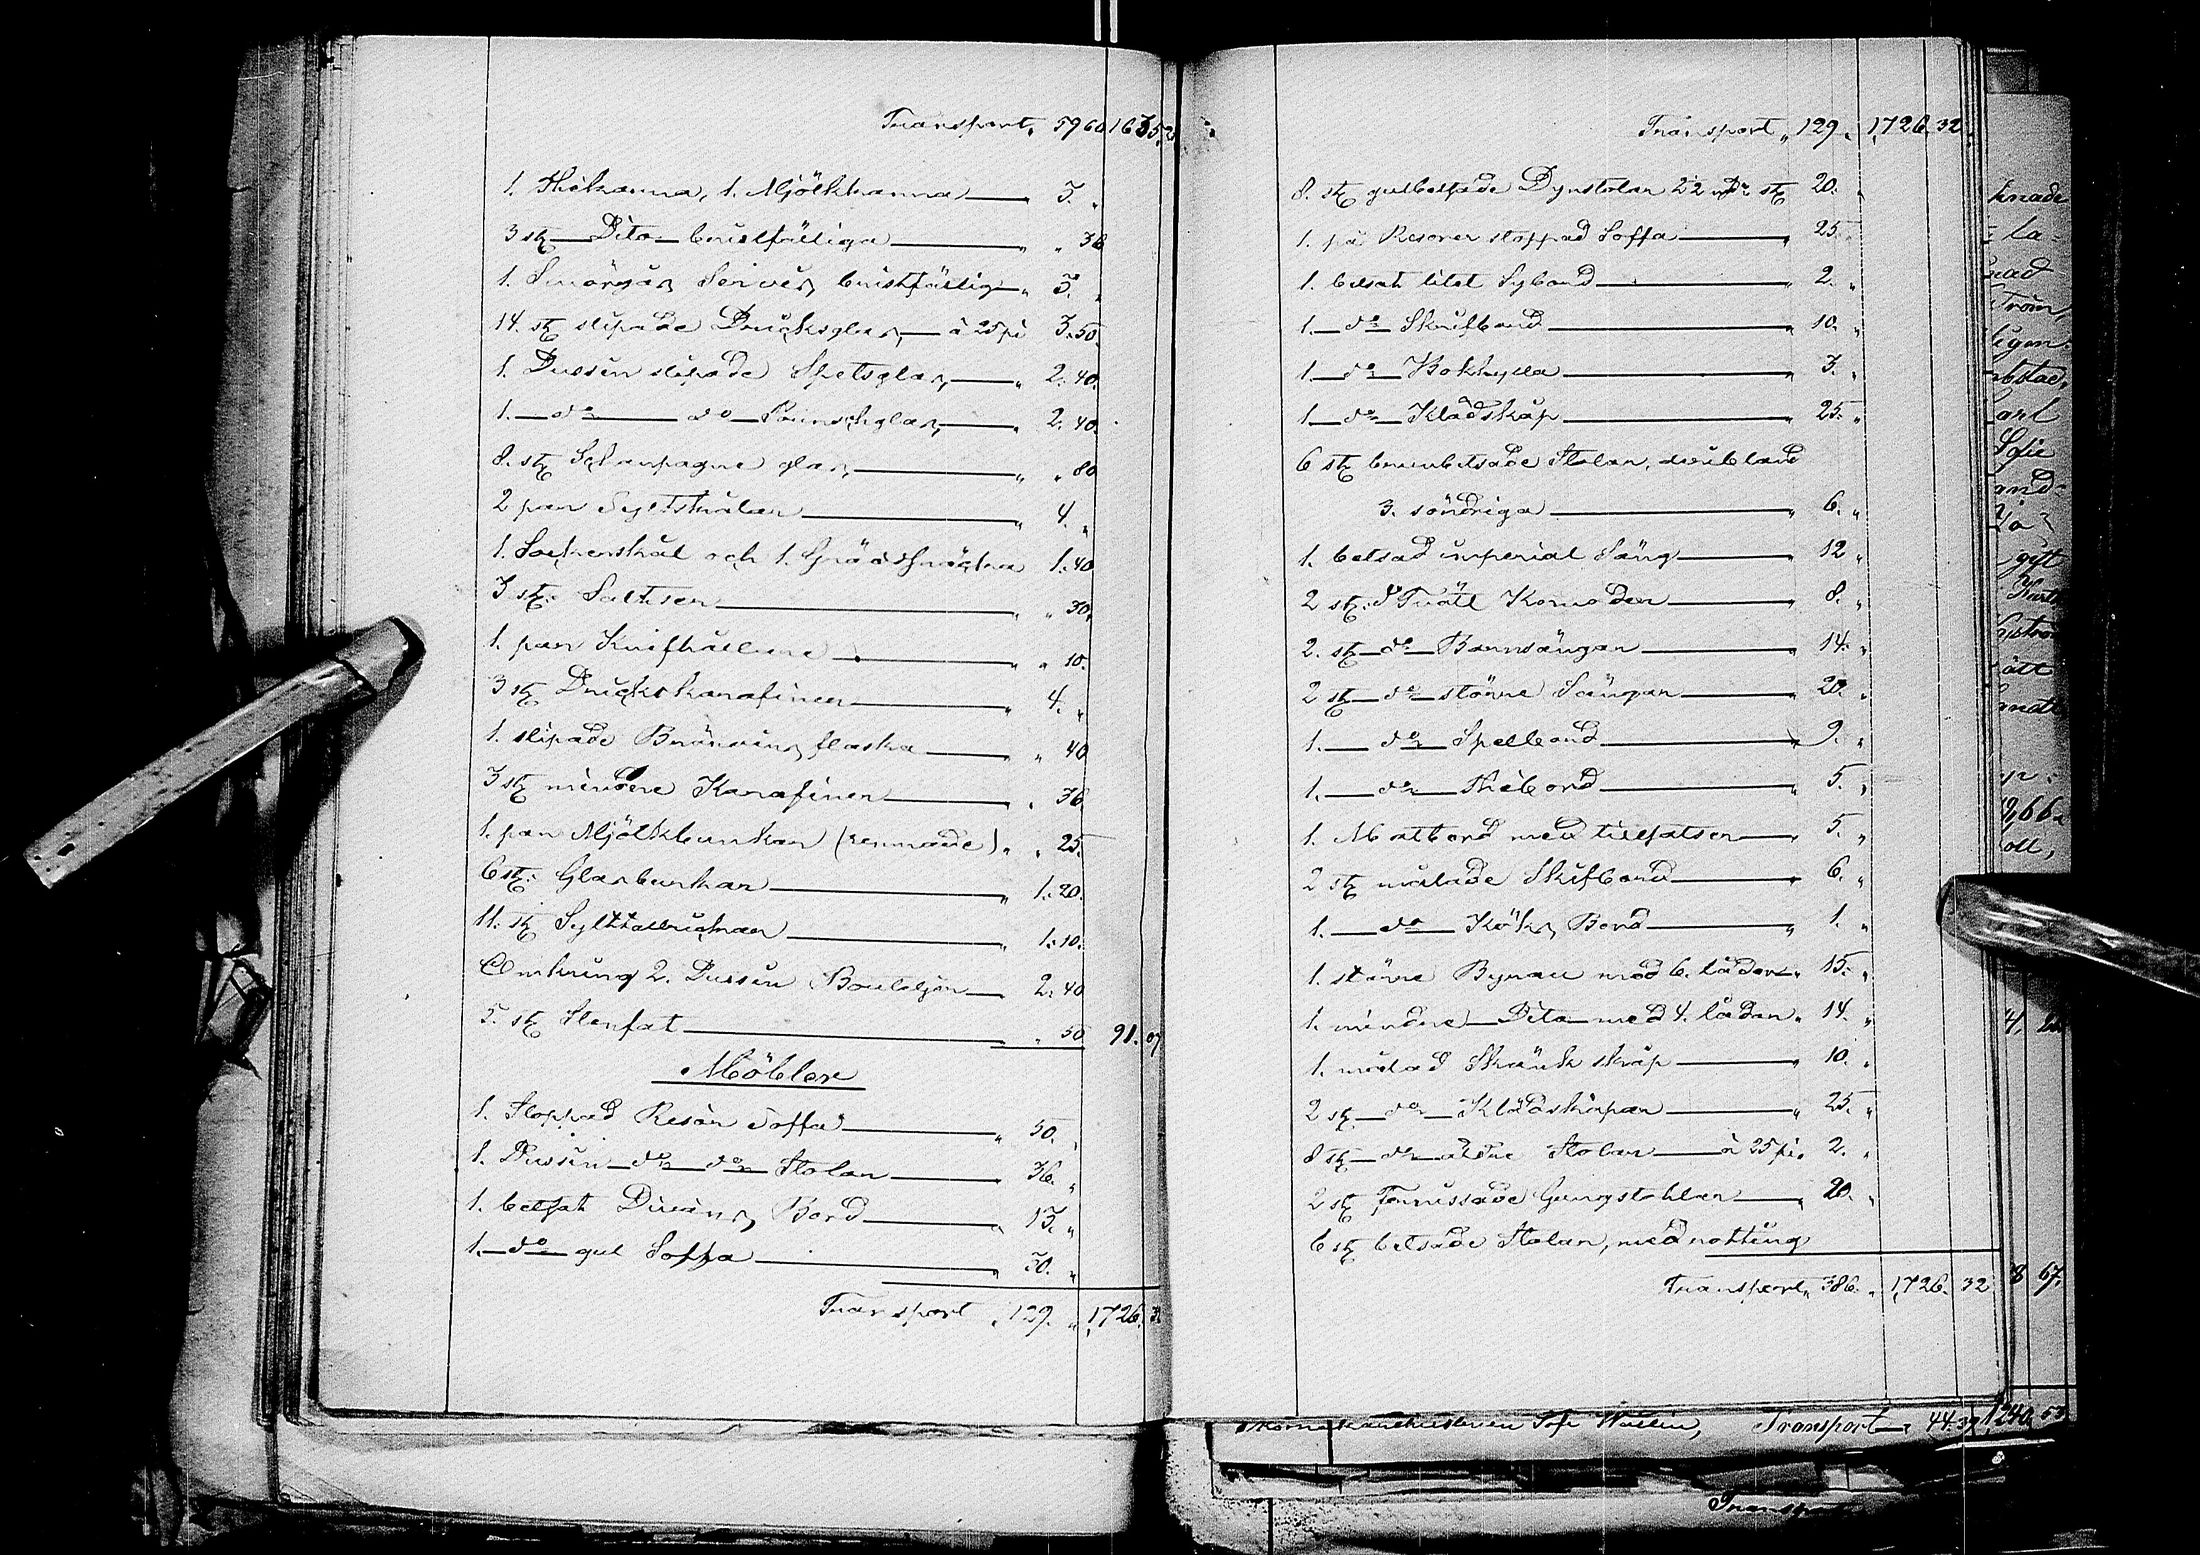 Transport " 59 60 1635 25
1. Thékanna, 1. Mjölkkanna " 3. "
3 st Dito bristfälliga " " 36
1. Smörgås Servis, bristfällig " 3. "
14. st slipade Dricksglas, à 25 pi 3. 50.
1. Dussin slipade Spetsglas, " 2. 40.
1. do do Punschglas, " 2. 40.
8. st Schampagne glas, " " 80
2 par Syltskålar " 4. "
1. Sockerskål och 1. Gräddsnäcka 1. 40
3 st. Saltser " " 30.
1. par Knifhållare " " 10.
3 st Dricks karafiner " 4. "
1. slipade Brännvins flaska " 40
3 st mindre Karafiner " 36
1. par Mjölkbunkar (remnade) " " 25.
6 st. Glasbunkar " 1. 20.
11. st Syltallrickar " 1. 10.
Omkring 2. Dussin Bouteljer 2. 40
5. st Stenfat " 50 91. 07
Möbler
1. Stoppad Resår Soffa " 50. "
1. Dussin do do Stolar " 36. "
1. betsat Divans Bord " 13. "
1. do gul Soffa " 30. "
Transport " 129. " 1,726. 32
Transport " 129 " 1,726 32.
8. st gulbetsade Dynstolar 2 2 st 20. "
1. på Resorer stoppad Soffa " 25. "
1. betsat litet Sybord " 2. "
1. do Skrifbord " 10. "
1. do Bokhylla " 3. "
1 do Klädskåp " 25. "
6 st brunbetsade Stolar, deribland
3. söndriga " 6. "
1. betsad imperial Säng " 12 "
2 st. do Tvätt Komoder " 8. "
2. st do Barnsängar " 14. "
2 st do större Sängar " 20. "
1. do Spelbord " 9. "
1. do Thébord " 5. "
1. Matbord med tillsatser " 5. "
2 st målade Skifbord " 6. "
1. do Köks Bord " 1. "
1. större Byrau med 6. lådor " 15. "
1. mindre Dito med 4. lådor " 14. "
1. målad Skänk skåp " 10. "
2 st do Klädskåpar " 25. "
8 st do äldre Stolar à 25 pi. 2. "
2 st Fernissade Gungstohlar " 20. "
6 st betsade Stolar, med rotting
Transport " 386. " 1,726. 32
Transport 44. 39 1240. 53